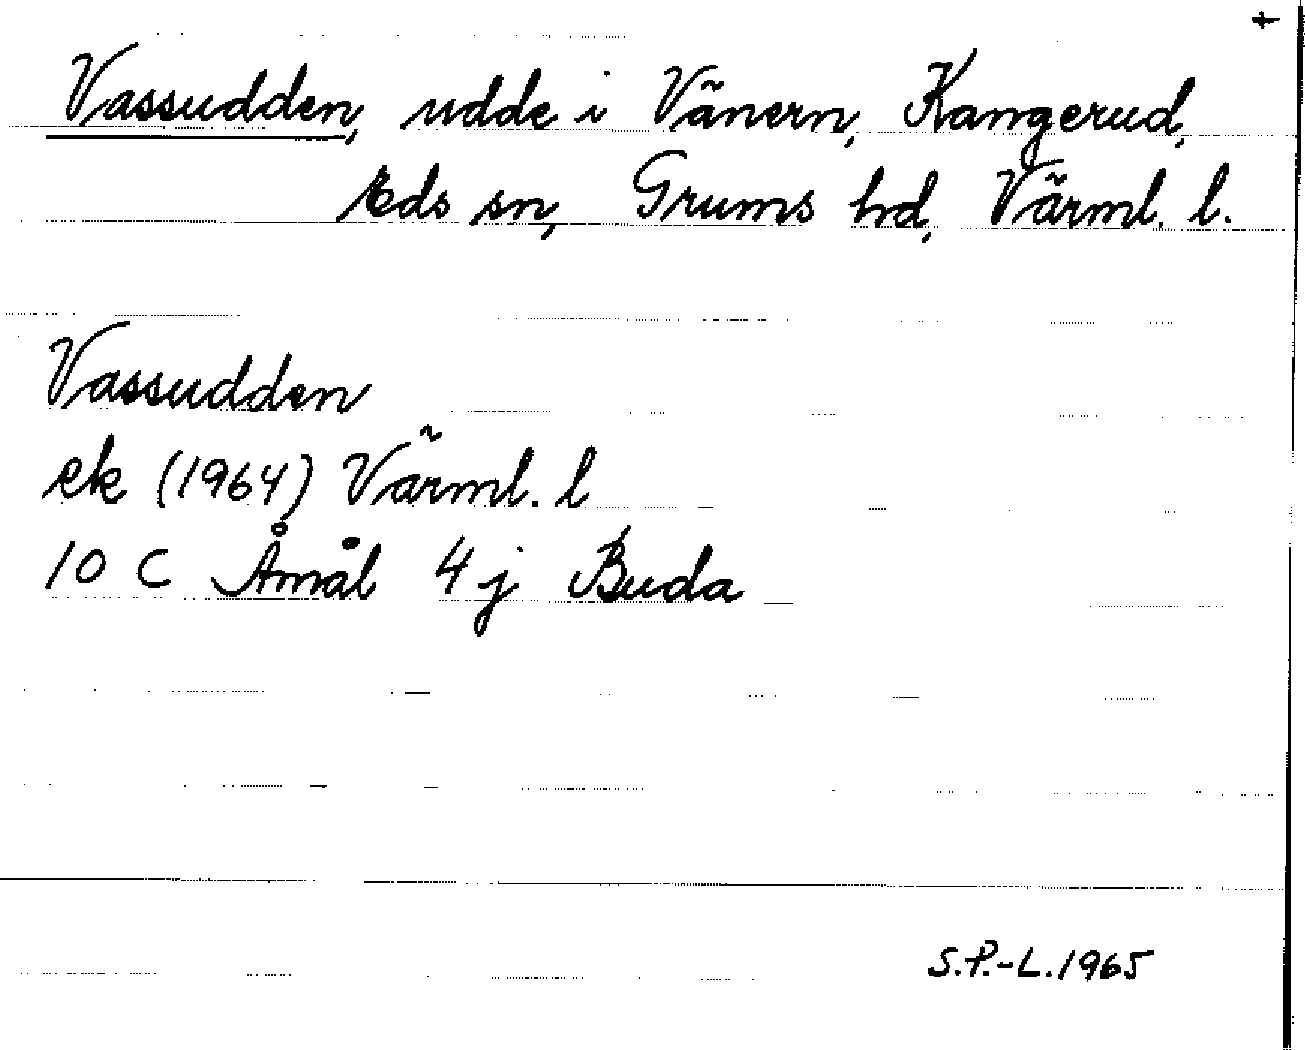 Vassudden, udde i Vänern, Kangerud,
Eds sn, Grums hd, Värml. l.
Vassudden
ek (1964) Värml. l
10 C Åmål 4 j Buda
S.P.-L. 1965